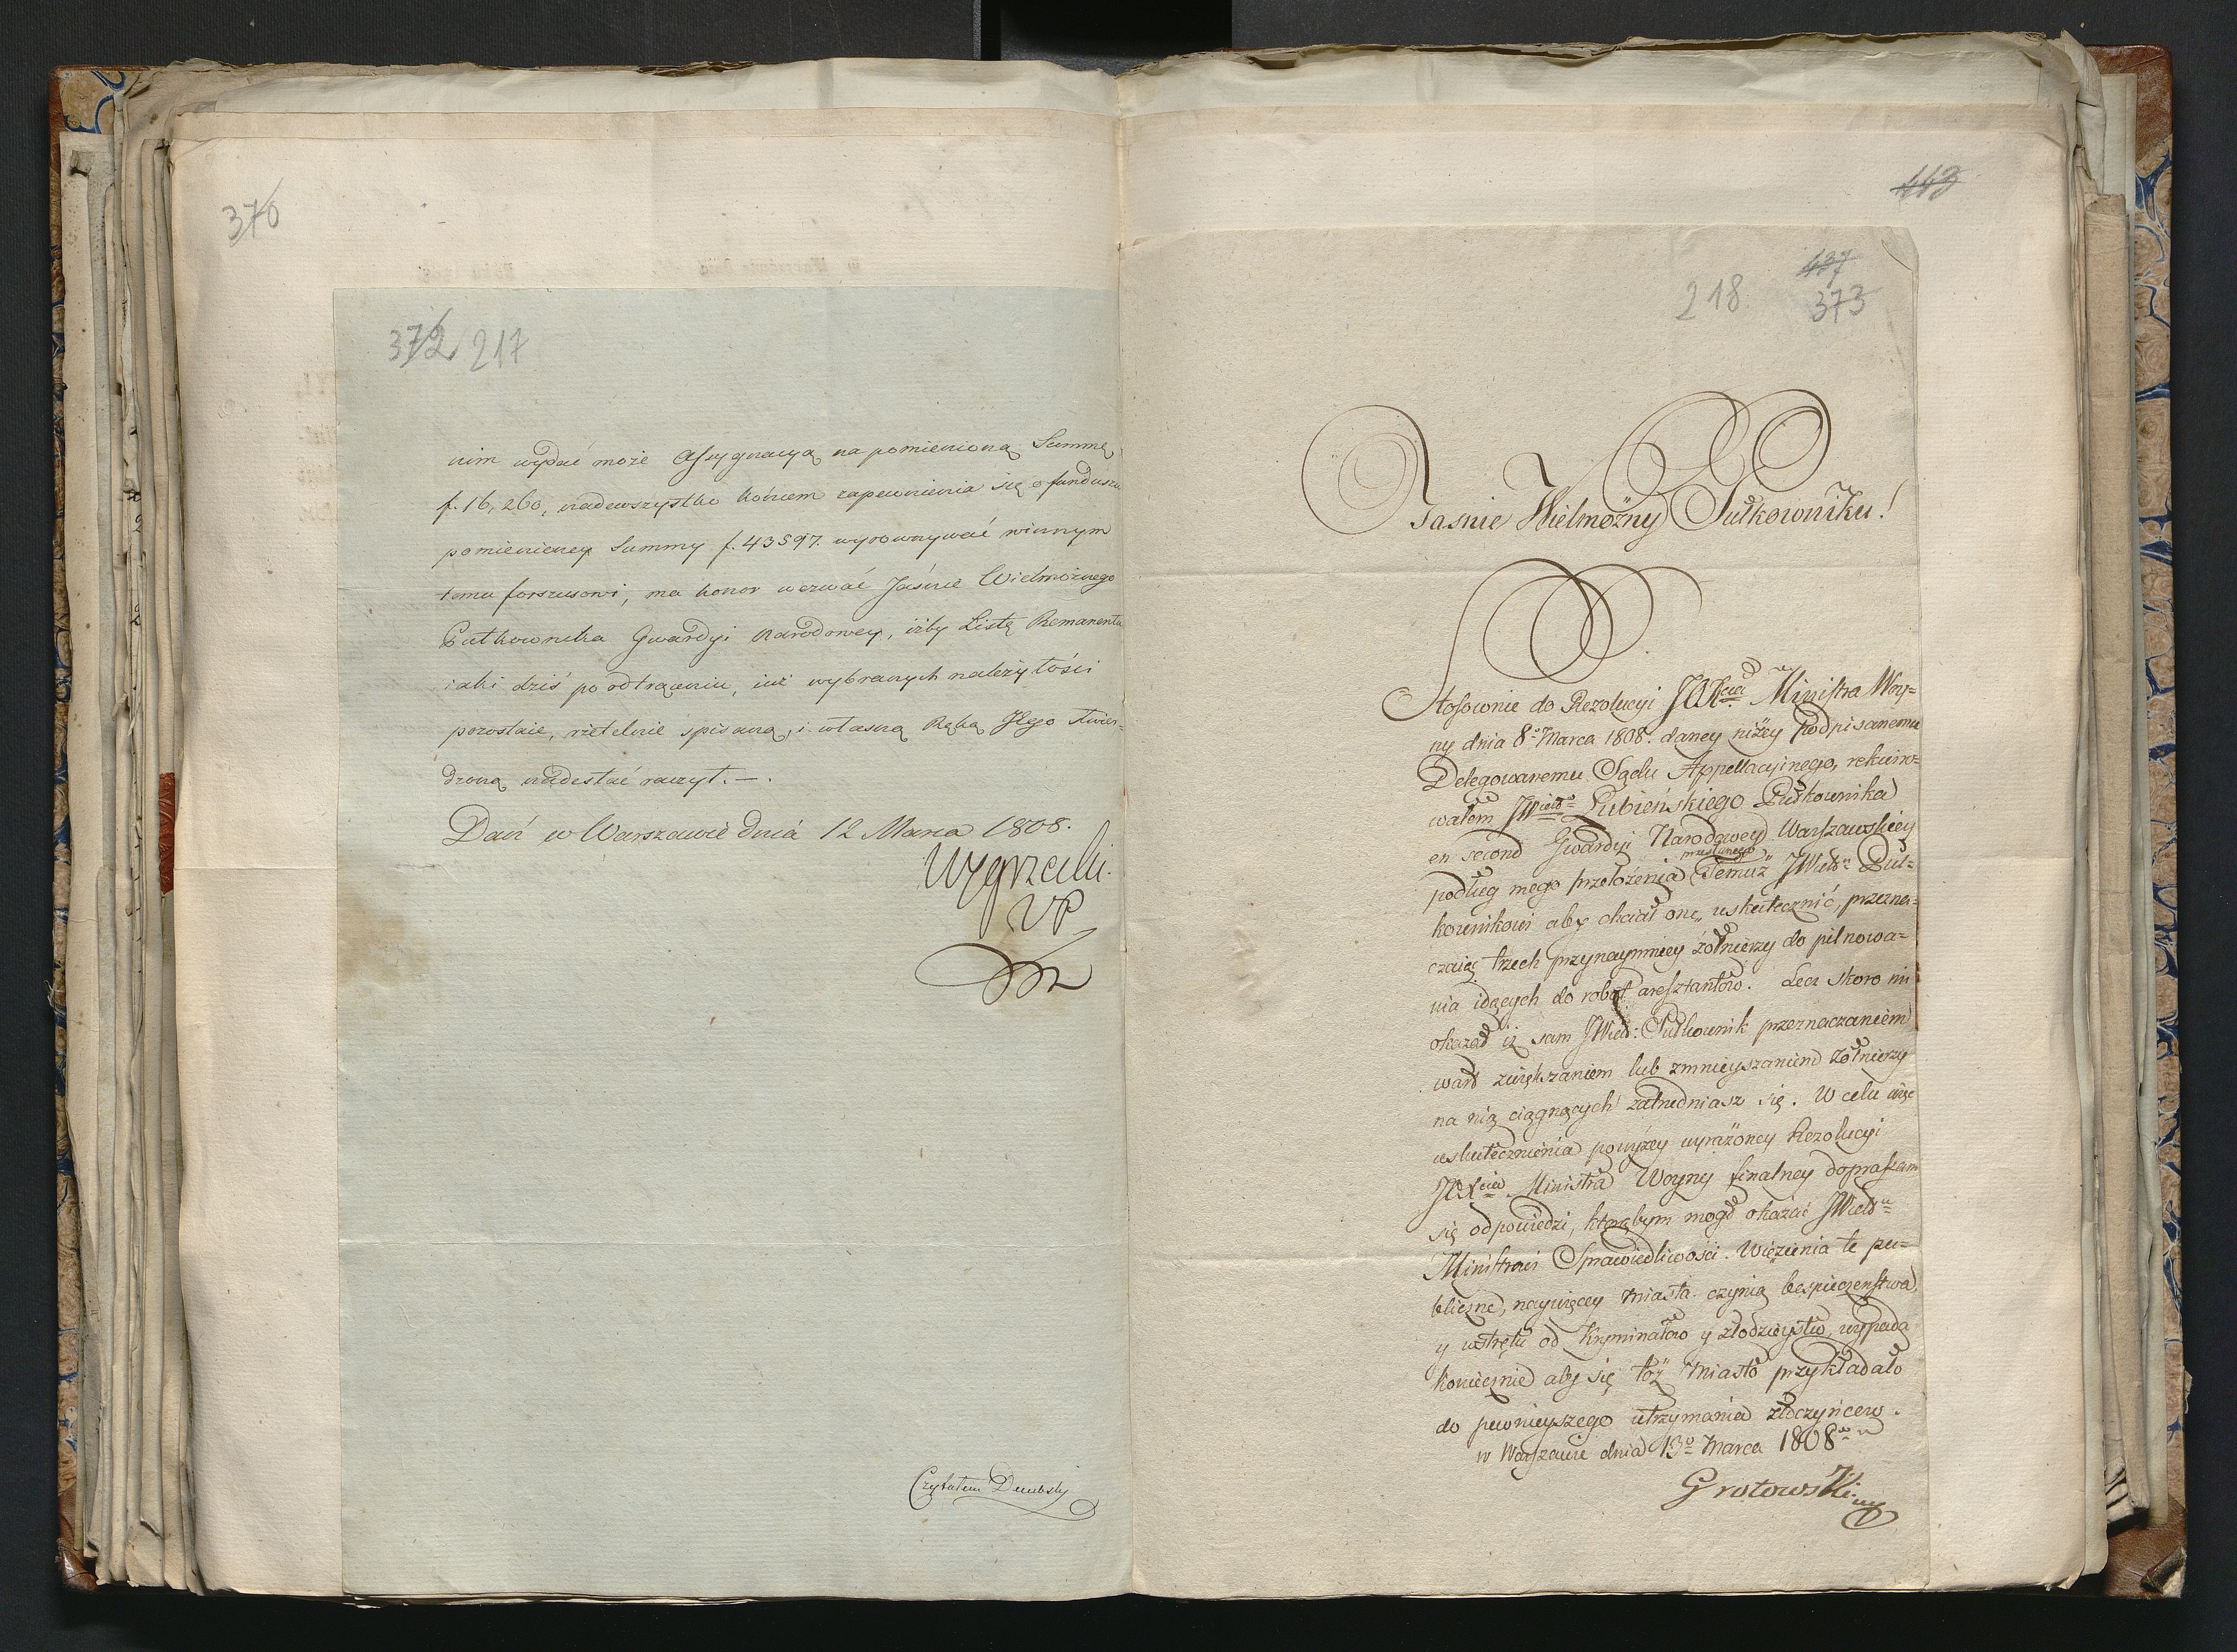 370
372 217
nim wydać może Assygnacyą na pomienioną Summę
f. 16,260, nadewszystko końcem zapewnienia się o funduszu
pomienioney Summy f. 43597. wyrownywać winnym
temu forszusowi, ma honor wezwać Jaśnie Wielmożnego
Pułkownika Gwardyi Narodowey, iżby Listę Remanentu
iaki dziś po odtrąceniu, iuż wybranych należytości
pozostaie, rzetelnie spisaną, i własną Ręką Jego stwier-
dzoną nadesłać raczył. —.
Dań w Warszawie dnia 12 Marca 1808.
Węgrzecki.
VP
Czytałem Dembsky
443
437
218 373
Jasnie Wielmożny Pułkowniku!
Stosownie do Rezolucyi JOXcia Ministra Woy=
ny dnia 8o Marca 1808. daney niżey podpisanemu
Delegowanemu Sądu Appellacyjnego, rekwiro=
wałem JWielo Łubieńskiego Pułkownika
en second Gwardyi Narodowey Warszawskiey
podług mego przełożenia przesłanego Temuż JWielu Puł=
kownikowi aby chciał onę uskutecznić, przezna=
czaiąc trzech przynaymniey żołnierzy do pilnowa=
nia idących do robot aresztantow. Lecz skoro mi
okazał iż sam JWiel: Pułkownik przeznaczaniem
ward zwiększaniem lub zmnieyszaniem żołnierzy
na nią ciągnących zatrudniasz się. W celu więc
uskutecznienia powyżey wyrażoney Rezolucyi
JOXcia Ministra Woyny finalney dopraszam
się odpowiedzi, którąbym mogł okazać JWielu
Ministrowi Sprawiedliwości. Więzienia te pu=
bliczne, naywięcey miasta czynią bespieczenstwa,
y wstrętu od Kryminałow y złodzieystw, wypada
koniecznie aby się toż miasto przykładało
do pewnieyszego utrzymania złoczyńcow.
w Warszawie dnia 13o Marca 1808
Grotowski mp